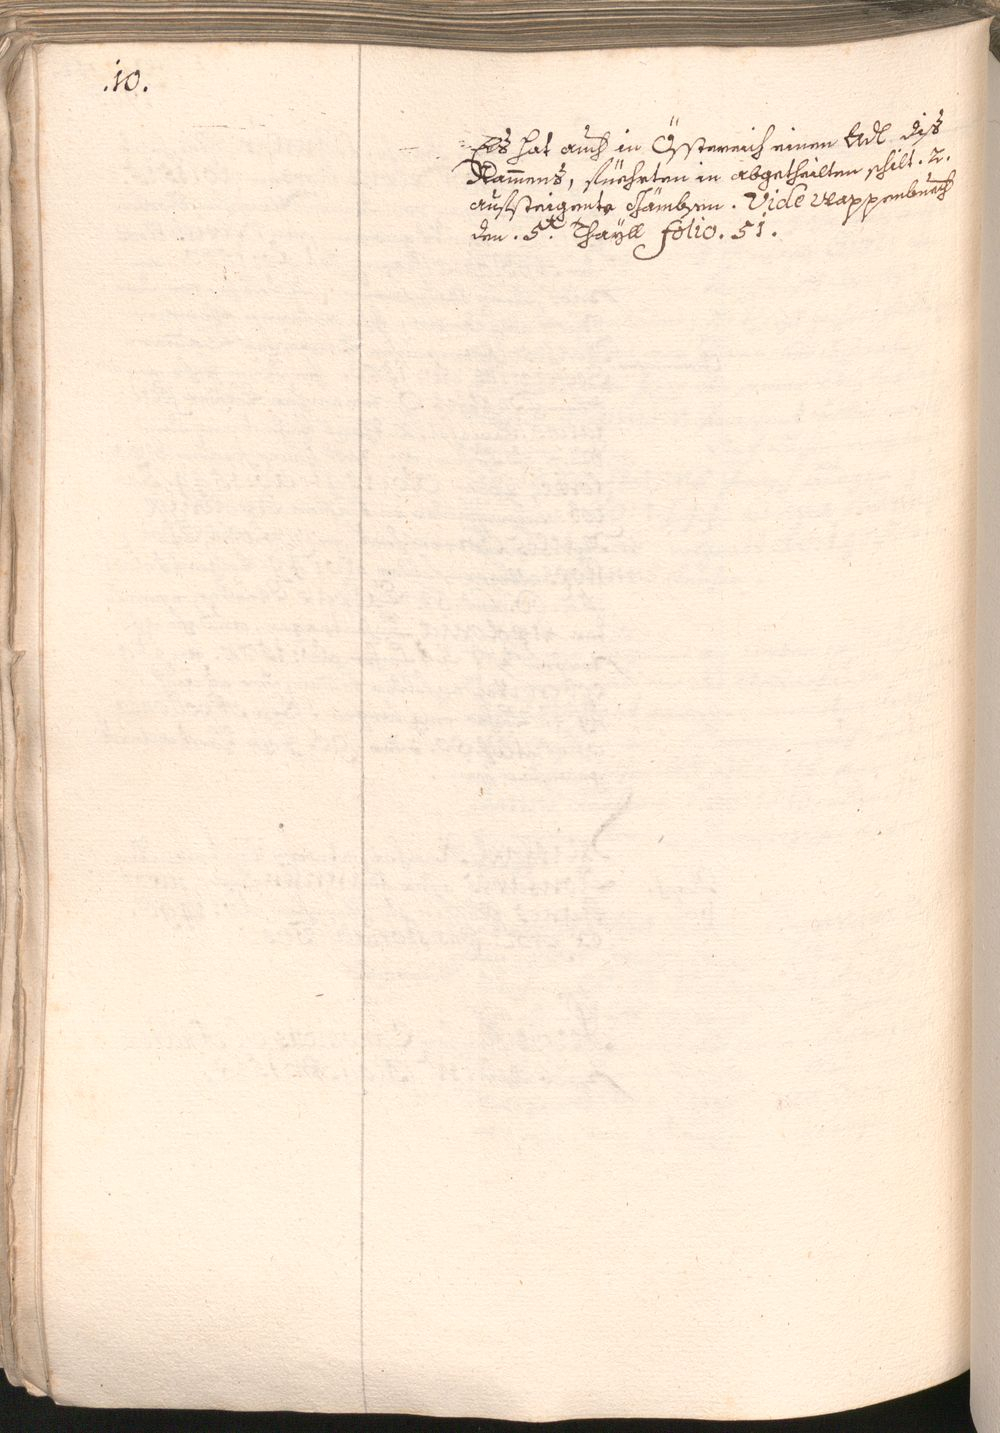 .10.
Es hat auch in Össtereich einen Adl diss
Nam̅enss, füehrten in abgetheilten schilt. 2.
aufsteigente Gämbsen. Vide Wappenbuech
den. 5.t Thayll folio. 51.